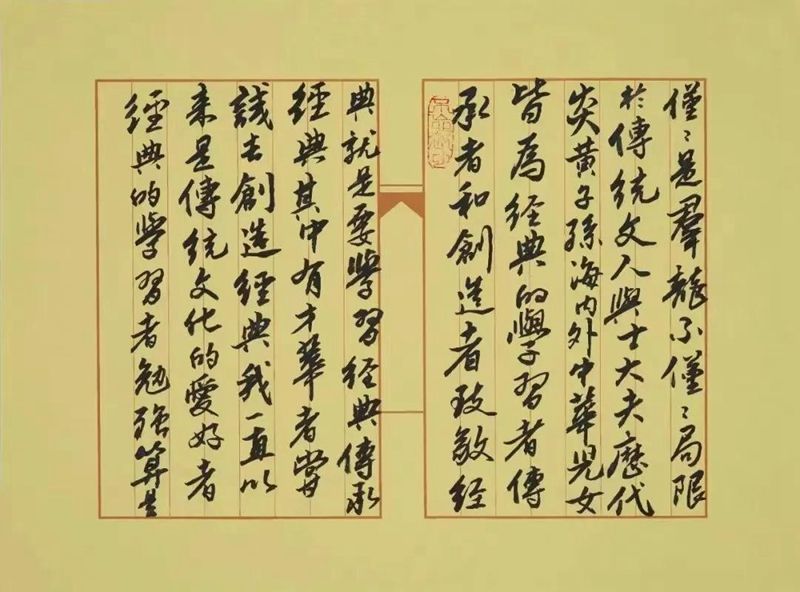 僅〻是羣龍不僅〻局限
於傳統文人與士大夫歷代
炎黃子孫海内外中華兒女
皆爲經典的學習者傳
承者和創造者致敬經
典就是要學習經典傳承
經典其中有才華者嘗
試去創造經典我一直以
来是傳統文化的愛好者
經典的學習者勉强算是